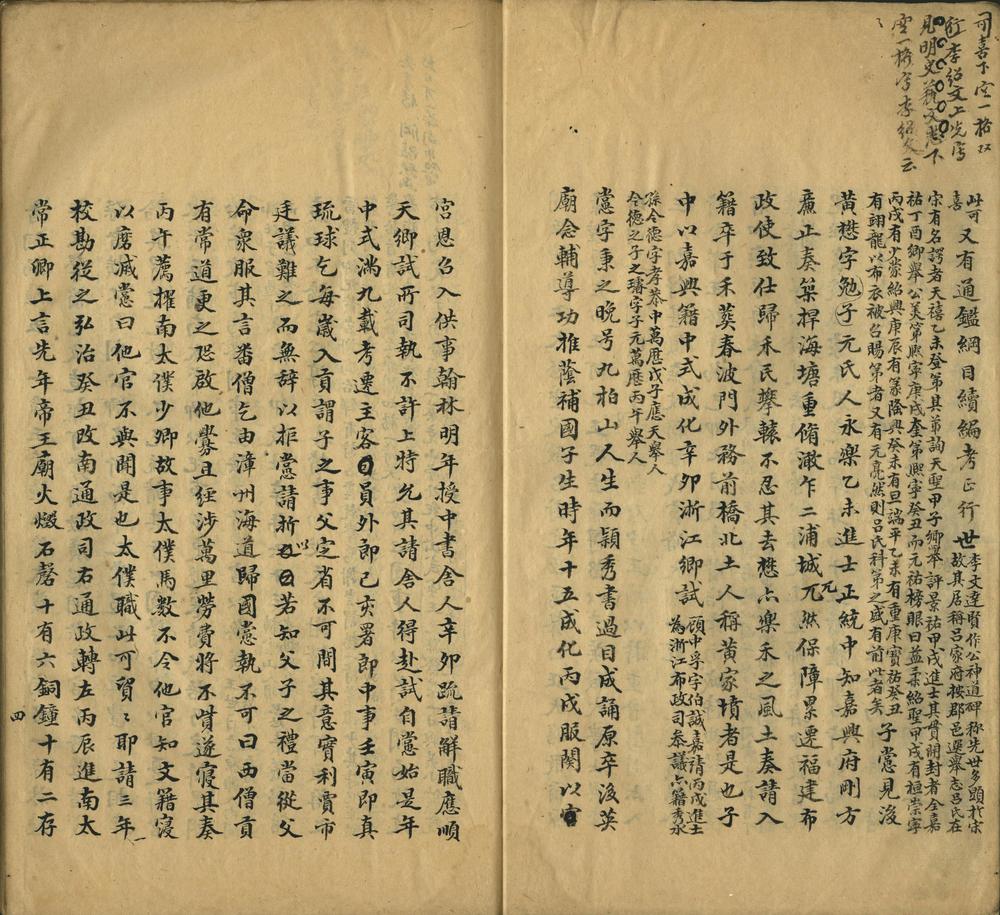 司喜下空一格双
行李紹文上先寫
見明史藝文志下
空一格寫李紹文云
此可
喜
又有通鑑綱目續編考正行世
李文達賢作公神道碑称先世多顕於宋
故其居稱呂家府按郡邑選舉志呂氏在
宋有名諤者天禧乙未登第其弟詢天聖甲子鄉舉評景祐甲戌進士其貫開封者全嘉
祐丁酉鄉舉公美第熙寧庚戌奎第熙寧癸丑而元祐榜眼曰益柔紹聖甲戌有桓崇寧
丙戌有紹興庚辰有篆隂興癸未有旦端平乙未有重庚寳祐癸丑
有翊龍以布衣被召賜第者又有元亮然則呂氏科第之盛有前此者矣
子䇔見後
黃懋字勉子元氏人永樂乙未進士正統中知嘉興府剛方
亷正奏築捍海塘重脩澉乍二浦城兀然保障累遷福建布
元
政使致仕歸禾民攀轅不忍其去懋亦樂禾之風土奏請入
籍卒于禾葵春波門外務前橋北土人稱黃家墳者是也子
中以嘉興籍中式成化辛夘浙江鄉試
頭中孚字伯誠嘉靖丙戌進士
為浙江布政司叅議亦籍秀水
孫令德字孝恭中萬歷戊子應天舉人
令德之子之璿字子元萬歷丙午舉人
䇔字秉之晚号九柏山人生而穎秀書過目成誦原卒後英
廟念輔導功推蔭補國子生時年十五成化丙戌服闋以官
宮恩召入供事翰林明年授中書舍人辛夘䟽請解職應順
天鄉試所司執不許上特允其請舍人得赴試自䇔始是年
中式滿九載考遷主客員外郎己亥署郎中事壬寅即真
琉球乞每歲入貢謂子之事父定省不可間其意實利賈市
廷議難之而無辭以拒䇔請折以曰若知父子之禮當從父
命衆服其言番僧乞由漳州海道歸國䇔執不可曰西僧貢
有常道更之恐啟他釁且經涉萬里勞費將不貲遂寢其奏
丙午薦擢南太僕少卿故事太僕馬數不令他官知文籍寖
以磨滅䇔曰他官不與聞是也太僕職此可貿〻耶請三年一
校勘從之弘治癸丑改南通政司右通政轉左丙辰進南太
常正卿上言先年帝王廟火燬石磬十有六銅鐘十有二存
四